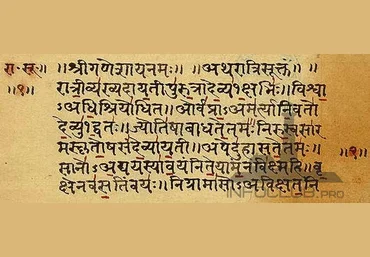 रा॰ सू॰ ॥श्रीगणेशायनमः॥ ॥अथरात्रिसूक्तं॥
॥१॥ रात्रीव्यख्यदायतीपुरुत्रादेव्य१क्षभिः॥विश्वा
ऽअधिश्रियोधित॥ओर्वप्राऽअमर्त्यानिवतो
देव्यु१द्वतः॥ज्योतिषाबाधतेतमः॥निरुस्वसार
मस्कृतोषसंदेव्यायती॥अपेदुहासतेतमः॥ ॥१॥
सानोऽअद्ययस्यावयंनितेयामन्नविक्ष्महि॥वृ
क्षेनवसतिंवयः॥निग्रामासोऽअविक्षतनि
INFOCLUB.PRO